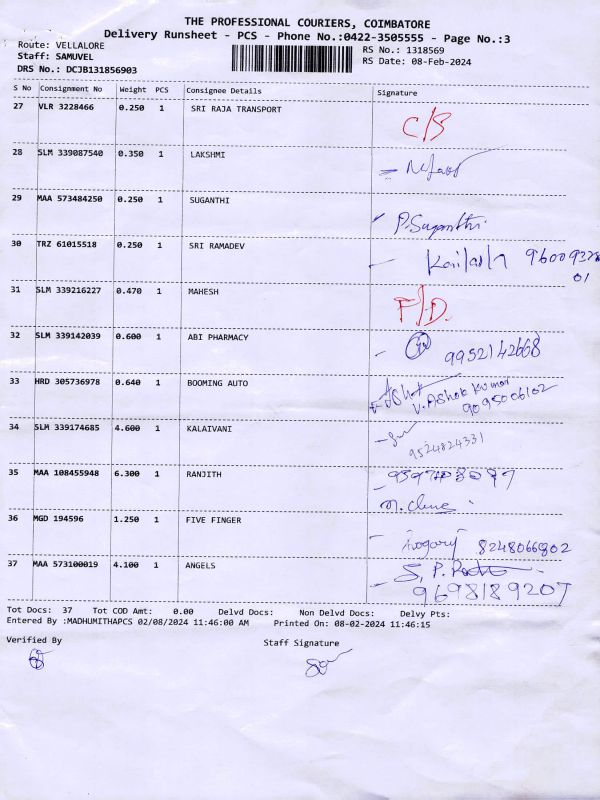 THE PROFESSIONAL COURIERS, COIMBATORE
Delivery Runsheet - PCS - Phone No.:0422-3505555 - Page No.:3
Route: VELLALORE RS No.: 1318569
Staff: SAMUVEL RS Date: 08-Feb-2024
DRS No.: DCJB131856903
S No Consignment No Weight PCS Consignee Details Signature
27 VLR 3228466 0.250 1 SRI RAJA TRANSPORT
C/S
28 SLM 339087540 0.350 1 LAKSHMI
29 MAA 573484250 0.250 1 SUGANTHI
P.Suganthi
30 TRZ 61015518 0.250 1 SRI RAMADEV
Kailash
31 SLM 339216227 0.470 1 MAHESH
F/D.
32 SLM 339142039 0.600 1 ABI PHARMACY
9952142668
33 HRD 305736978 0.640 1 BOOMING AUTO
V. Ashok Kumar
9095006102
34 SLM 339174685 4.600 1 KALAIVANI
9524824331
35 MAA 108455948 6.300 1 RANJITH
36 MGD 194596 1.250 1 FIVE FINGER
8248066802
37 MAA 573100019 4.100 1 ANGELS
9698189207
Tot Docs: 37 Tot COD Amt: 0.00 Delvd Docs: Non Delvd Docs: Delvy Pts:
Entered By :MADHUMITHAPCS 02/08/2024 11:46:00 AM Printed On: 08-02-2024 11:46:15
Verified By Staff Signature